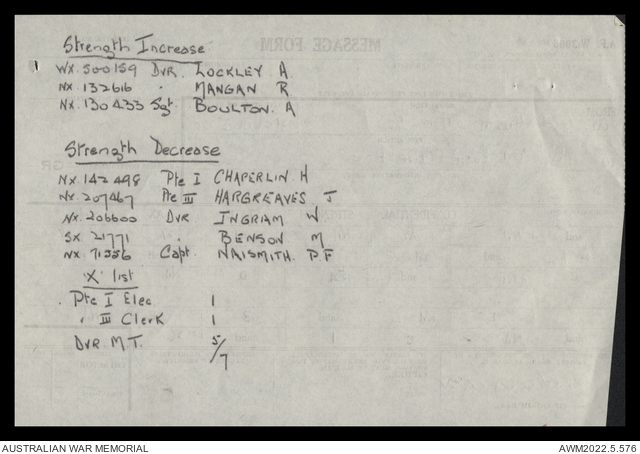 Strength Increase
WX.500159 Dvr. LOCKLEY A
NX.132616 " MANGAN R
NX.130433 Sgt. BOULTON. A
Strength Decrease
NX.142498 Pte I CHAPERLIN H
NX.207467 Pte III HARGREAVES J
NX.206600 DVR INGRAM W
SX.21771 " BENSON M
NX.71556 Capt. NAISMITH. P F
'X' list
Pte I Elec 1
" III Clerk 1
DVR M.T. 5/7
MESSAGE FORM
AUSTRALIAN WAR MEMORIAL AWM2022.5.576